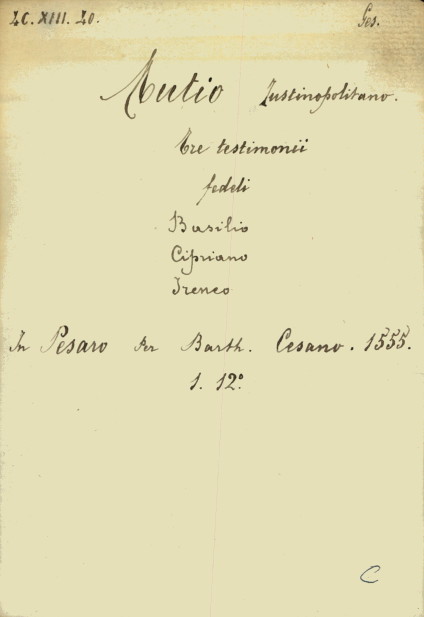 LC. XIII. 20. Ges.
Mutio Justinopolitano.
Tre testimonii
fedeli
Basilio
Cipriano
Ireneo
In Pesaro per Barth. Cesano. 1555.
1. 12º
C